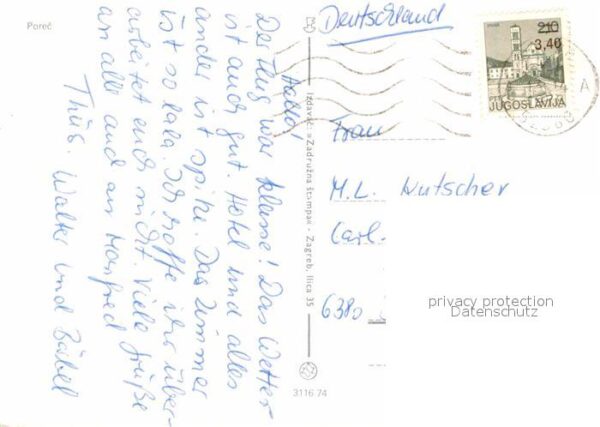 Poreč
Hallo!
Der Flug war klasse! Das Wetter
ist auch gut. Hotel und alles
andere ist spitze. Das Zimmer
ist so lala. Ich hoffe ihr über-
arbeitet euch nicht. Viele Grüße
an alle und an Manfred
Tschüß. Walter und Bäbel
Izdavač: »Zadružna štampa« - Zagreb, Ilica 35
3116 74
Deutschland
2,10
3,40
JUGOSLAVIJA
Frau
M.L. Kutscher
Carl.
6380
privacy protection
Datenschutz